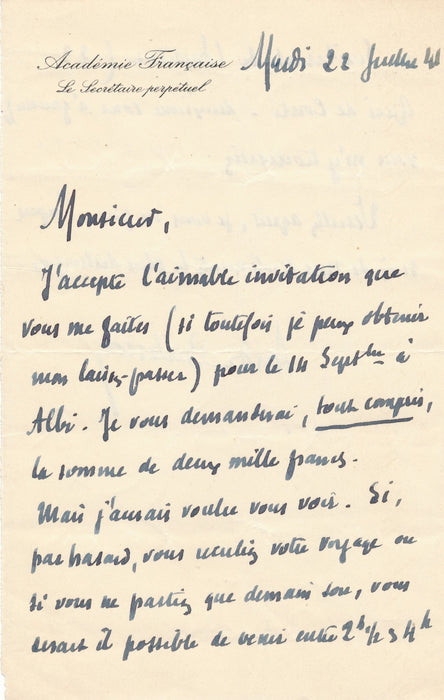 Académie Française
Le Secrétaire perpétuel
Mardi 22 Juillet 41
Monsieur,
J'accepte l'aimable invitation que
vous me faites (si toutefois je peux obtenir
mon laissez-passer) pour le 14 Septbre à
Albi. Je vous demanderai, tout compris,
la somme de deux mille francs.
Mais j'aurais voulu vous voir. Si,
par hasard, vous reculiez votre voyage ou
si vous ne partiez que demain soir, vous
serait il possible de venir entre 2h 1/2 & 4h